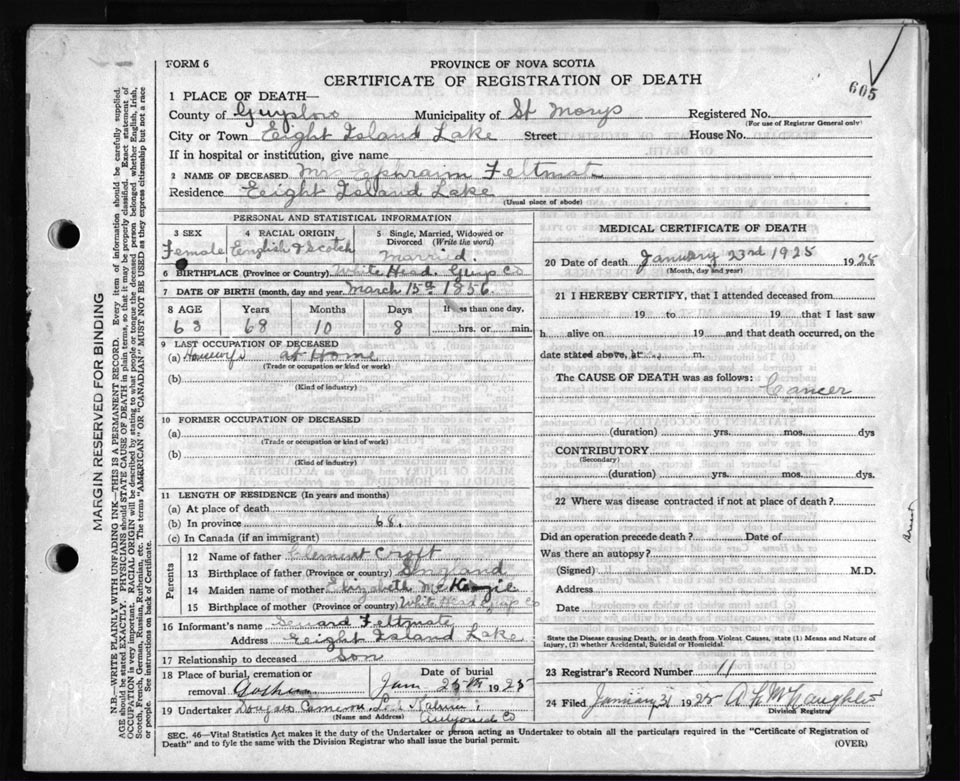 605
FORM 6
PROVINCE OF NOVA SCOTIA
CERTIFICATE OF REGISTRATION OF DEATH
1 PLACE OF DEATH—
County of Guysboro Municipality of St Marys Registered No.
(For use of Registrar General only)
City or Town Eight Island Lake Street House No.
If in hospital or institution, give name
2 NAME OF DECEASED Mr Ephraim Feltmat
Residence Eeight Island Lake
(Usual place of abode)
PERSONAL AND STATISTICAL INFORMATION
3 SEX 4 RACIAL ORIGIN 5 Single, Married, Widowed or
Divorced (Write the word)
Female English & Scotch Married.
6 BIRTHPLACE (Province or Country) White Head. Guys Co
7 DATE OF BIRTH (month, day and year March 15th 1856.
8 AGE Years Months Days If less than one day,
68 68 10 8 hrs. or min.
9 LAST OCCUPATION OF DECEASED
(a) Housewife at Home
(Trade or occupation or kind or work)
(b)
(Kind of industry)
10 FORMER OCCUPATION OF DECEASED
(a)
(Trade or occupation or kind of work)
(b)
(Kind of industry)
11 LENGTH OF RESIDENCE (In years and months)
(a) At place of death
(b) In province 68.
(c) In Canada (if an immigrant)
Parents
12 Name of father Clement Croft
13 Birthplace of father (Province or country) England
14 Maiden name of mother Elizabeth McKenzie
15 Birthplace of mother (Province or country) White Head Guys Co
16 Informant's name Feltmate
Address Eeight Island Lake
17 Relationship to deceased Son
18 Place of burial, cremation or Date of burial
removal Goshen Jan 25th 1925
19 Undertaker Douglas Cameron Loch Katrine
(Name and Address) Antigonish Co
MEDICAL CERTIFICATE OF DEATH
20 Date of death January 23rd 1925 1925
(Month, day and year)
21 I HEREBY CERTIFY, that I attended deceased from
19 to 19 that I last saw
h alive on 19 and that death occurred, on the
date stated above, at m.
The CAUSE OF DEATH was as follows: Cancer
(duration) yrs. mos. dys
CONTRIBUTORY
(Secondary)
(duration) yrs. mos. dys.
22 Where was disease contracted if not at place of death?
Did an operation precede death? Date of
Was there an autopsy?
(Signed) M.D.
Address
Date
State the Disease causing Death, or in death from Violent Causes, state (1) Means and Nature of
Injury, (2) whether Accidental, Suicidal or Homicidal.
23 Registrar's Record Number 11
24 Filed January 31 1925 A McNaughton
Division Registrar
SEC. 46—Vital Statistics Act makes it the duty of the Undertaker or person acting as Undertaker to obtain all the particulars required in the "Certificate of Registration of
Death" and to fyle the same with the Division Registrar who shall issue the burial permit. (OVER)
MARGIN RESERVED FOR BINDING
N.B.—WRITE PLAINLY WITH UNFADING INK—THIS IS A PERMANENT RECORD. Every item of information should be carefully supplied.
AGE should be stated EXACTLY. PHYSICIANS should STATE CAUSE OF DEATH in plain terms, so that it may be properly classified. Exact statement of
OCCUPATION is very important. RACIAL ORIGIN will be described by stating to what people or tongue the deceased person belonged whether English, Irish,
Scotch, French, German, Russian, Ruthenian, etc. The terms "AMERICAN" OR "CANADIAN" MUST NOT BE USED as they express citizenship but not a race
or people. See instructions on back of Certificate.